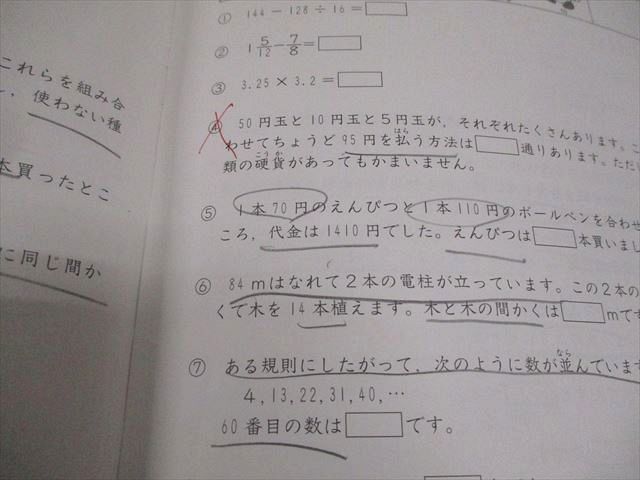 これらを組み合
し、使わない種
本買ったとこ
に同じ間か
① 144－128÷16＝□
② 1 5/12－7/8＝□
③ 3.25×3.2＝□
④ 50円玉と10円玉と5円玉が、それぞれたくさんあります。こ
わせてちょうど95円を払う方法は□通りあります。ただし
類の硬貨があってもかまいません。
⑤ 1本70円のえんぴつと1本110円のボールペンを合わせ
ころ、代金は1410円でした。えんぴつは□本買いまし
⑥ 84mはなれて2本の電柱が立っています。この2本の
くて木を14本植えます。木と木の間かくは□mです
⑦ ある規則にしたがって、次のように数が並んでいます
4,13,22,31,40,…
60番目の数は□です。